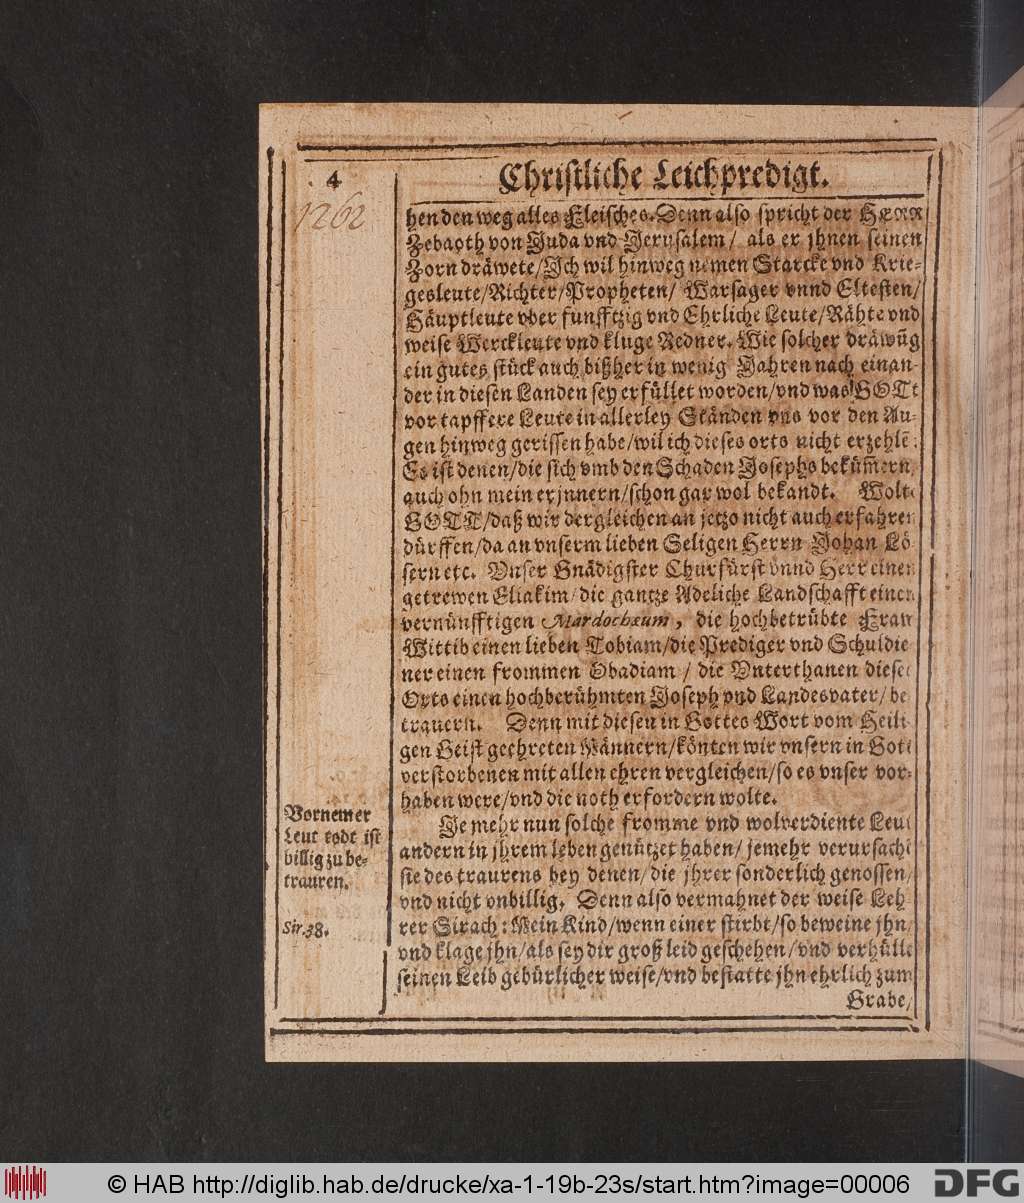 4
Christliche Leichpredigt.
1262
hen den weg alles Fleisches. Denn also spricht der HERR
Zebaoth von Juda vnd Jerusalem / als er jhnen seinen
Zorn dräwete/Ich wil hinweg nemen Starcke vnd Krie-
gesleute/Richter/Propheten/ Warsager vnnd Eltesten/
Häuptleute vber funfftzig vnd Ehrliche Leute/Rähte vnd
weise Werckleute vnd kluge Redner. Wie solcher dräwūg
ein gutes stück auch bißher in wenig Jahren nach einan-
der in diesen Landen sey erfüllet worden/vnd was GOTt
vor tapffere Leute in allerley Ständen vns vor den Au-
gen hinweg gerissen habe/wil ich dieses orts nicht erzehlē:
Es ist denen/die sich vmb den Schaden Josephs bekūm̄ern,
auch ohn mein erjnnern/schon gar wol bekandt. Wolte
GOTT/daß wir dergleichen an jetzo nicht auch erfahren
dürffen/da an vnserm lieben Seligen Herrn Johan Lö-
sern etc. Vnser Gnädigster Churfürst vnnd Herr einen
getrewen Eliakim/die gantze Adeliche Landschafft einen
vernünfftigen Mardochæum, die hochbetrübte Fraw
Wittib einen lieben Tobiam/die Prediger vnd Schuldie
ner einen frommen Obadiam / die Vnterthanen dieses
Orts einen hochberühmten Joseph vnd Landesvater/ be
trauern. Denn mit diesen in Gottes Wort vom Heili
gen Geist geehreten Männern/könten wir vnsern in Gott
verstorbenen mit allen ehren vergleichen/so es vnser vor-
haben were/vnd die noth erfordern wolte.
Vornemer
Leut todt ist
billig zu be-
trauren.
Je mehr nun solche fromme vnd wolverdiente Leut
andern in jhrem leben genützet haben/ jemehr verursacht
sie des traurens bey denen/die jhrer sonderlich genossen/
vnd nicht vnbillig. Denn also vermahnet der weise Leh-
Sir. 38.
rer Sirach: Mein Kind/wenn einer stirbt/so beweine jhn/
vnd klage jhn/als sey dir groß leid geschehen/vnd verhülle
seinen Leib gebürlicher weise/vnd bestatte jhn ehrlich zum
Grabe,
© HAB http://diglib.hab.de/drucke/xa-1-19b-23s/start.htm?image=00006
DFG